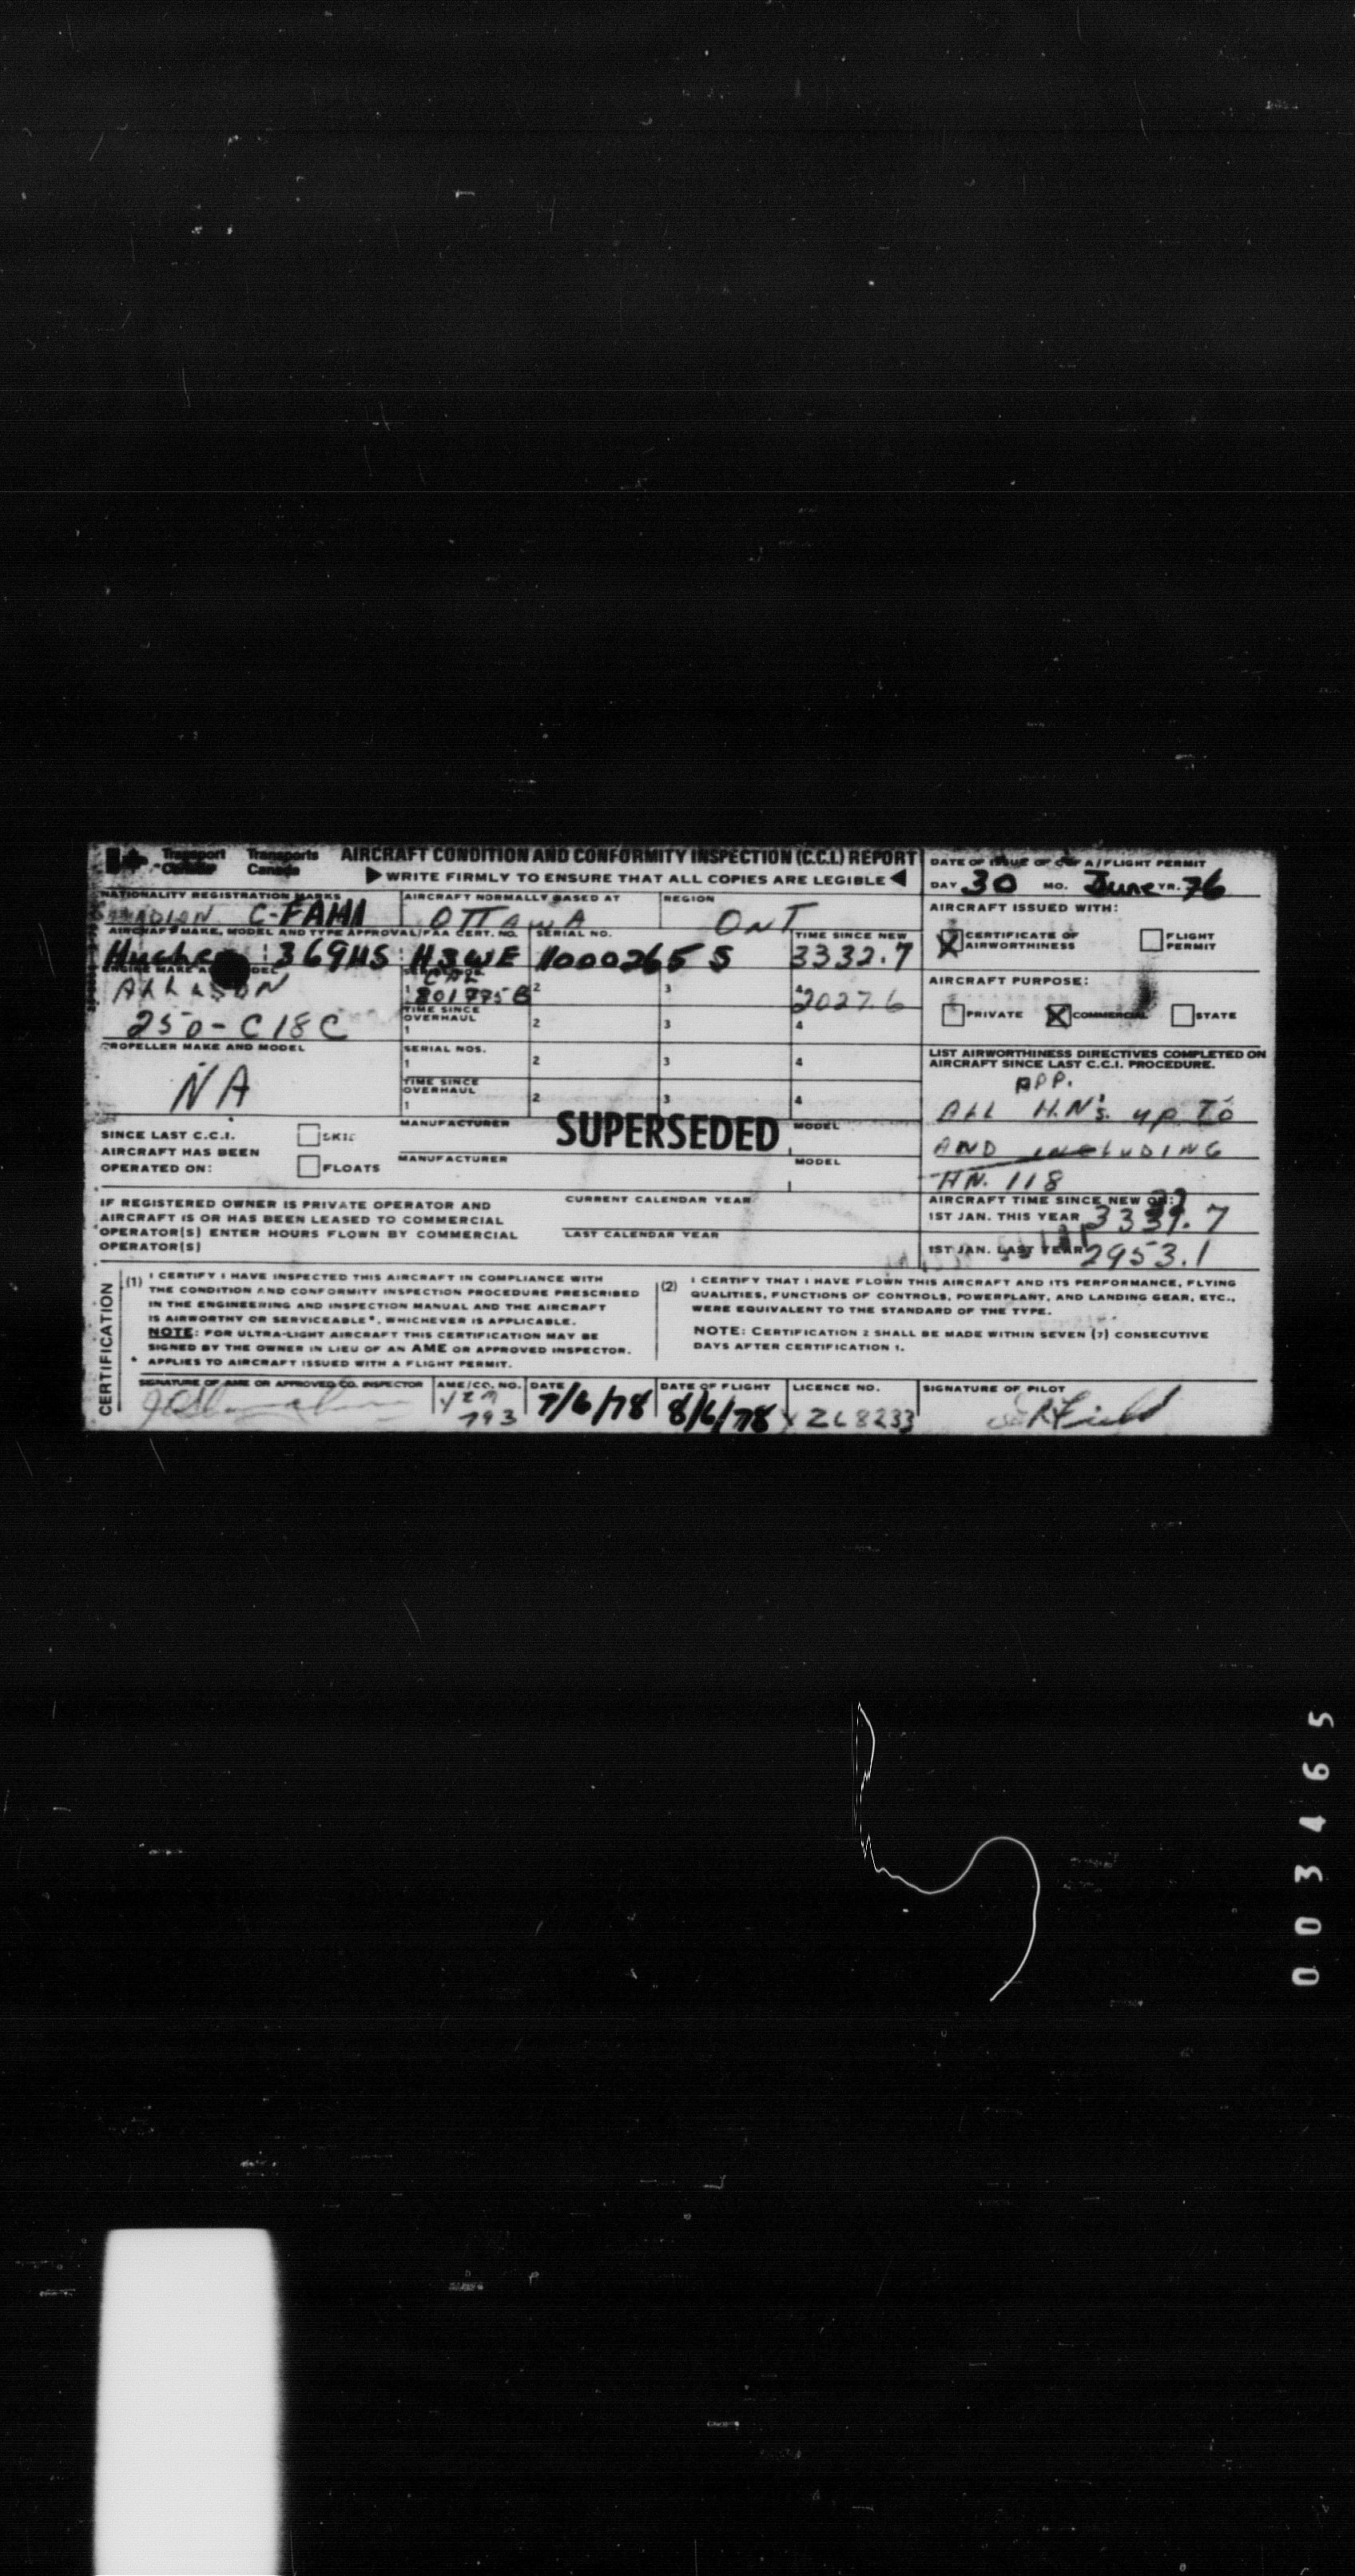 Transport Canada
Transports Canada
AIRCRAFT CONDITION AND CONFORMITY INSPECTION (C.C.I.) REPORT
▶WRITE FIRMLY TO ENSURE THAT ALL COPIES ARE LEGIBLE◀
DATE OF ISSUE OF C OF A/FLIGHT PERMIT
DAY 30 MO. June YR. 76
NATIONALITY REGISTRATION MARKS
C-FAHA
AIRCRAFT NORMALLY BASED AT
OTTAWA
REGION
ONT
AIRCRAFT ISSUED WITH:
X CERTIFICATE OF AIRWORTHINESS
FLIGHT PERMIT
AIRCRAFT MAKE, MODEL AND TYPE APPROVAL/FAA CERT. NO.
369HS H3WE
SERIAL NO.
1000265 S
TIME SINCE NEW
3332.7
AIRCRAFT PURPOSE:
PRIVATE
X COMMERCIAL
STATE
ENGINE MAKE AND MODEL
ALLISON
250-C18C
1 2 3 4
2027.6
TIME SINCE OVERHAUL
1 2 3 4
PROPELLER MAKE AND MODEL
NA
SERIAL NOS.
1 2 3 4
TIME SINCE OVERHAUL
1 2 3 4
LIST AIRWORTHINESS DIRECTIVES COMPLETED ON
AIRCRAFT SINCE LAST C.C.I. PROCEDURE.
APP.
ALL H.N's. up To
AND INCLUDING
HN. 118
SINCE LAST C.C.I.
AIRCRAFT HAS BEEN
OPERATED ON:
SKIS
FLOATS
MANUFACTURER
MODEL
MANUFACTURER
MODEL
SUPERSEDED
IF REGISTERED OWNER IS PRIVATE OPERATOR AND
AIRCRAFT IS OR HAS BEEN LEASED TO COMMERCIAL
OPERATOR(S) ENTER HOURS FLOWN BY COMMERCIAL
OPERATOR(S)
CURRENT CALENDAR YEAR
LAST CALENDAR YEAR
AIRCRAFT TIME SINCE NEW ON:
1ST JAN. THIS YEAR
1ST JAN. LAST YEAR 2953.1
CERTIFICATION
(1) I CERTIFY I HAVE INSPECTED THIS AIRCRAFT IN COMPLIANCE WITH
THE CONDITION AND CONFORMITY INSPECTION PROCEDURE PRESCRIBED
IN THE ENGINEERING AND INSPECTION MANUAL AND THE AIRCRAFT
IS AIRWORTHY OR SERVICEABLE*, WHICHEVER IS APPLICABLE.
NOTE: FOR ULTRA-LIGHT AIRCRAFT THIS CERTIFICATION MAY BE
SIGNED BY THE OWNER IN LIEU OF AN AME OR APPROVED INSPECTOR.
* APPLIES TO AIRCRAFT ISSUED WITH A FLIGHT PERMIT.
(2) I CERTIFY THAT I HAVE FLOWN THIS AIRCRAFT AND ITS PERFORMANCE, FLYING
QUALITIES, FUNCTIONS OF CONTROLS, POWERPLANT, AND LANDING GEAR, ETC.,
WERE EQUIVALENT TO THE STANDARD OF THE TYPE.
NOTE: CERTIFICATION 2 SHALL BE MADE WITHIN SEVEN (7) CONSECUTIVE
DAYS AFTER CERTIFICATION 1.
SIGNATURE OF AME OR APPROVED CO. INSPECTOR
AME/CO. NO.
793
DATE
7/6/78
DATE OF FLIGHT
8/6/78
LICENCE NO.
268233
SIGNATURE OF PILOT
003465